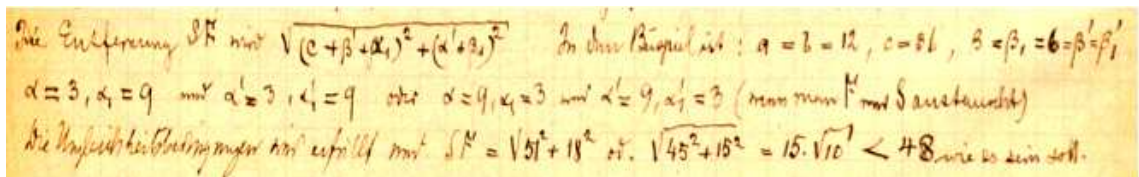 Die Entfernung SF wird √(c+β'+α₁)²+(α'+β₁)² In dem Beispiel ist: a=b=12, c=36, β=β₁=6=β'=β₁'
α=3, α₁=9 und α'=3, α₁'=9 oder α=9, α₁=3 und α'=9, α₁'=3 (wenn man F mit S austauscht)
Die Ungleichheitsbedingungen sind erfüllt und SF = √51²+18² od. √45²+15² = 15.√10 < 48 wie es sein soll.